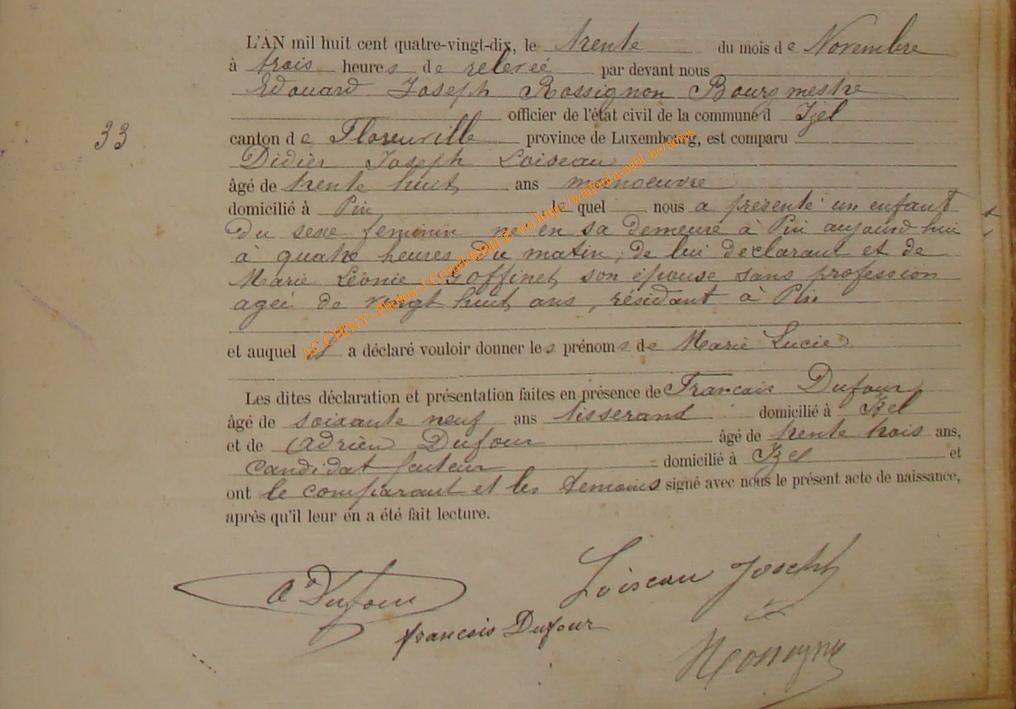 L'AN mil huit cent quatre-vingt-dix, le trente du mois de Novembre
à trois heures de relevée par devant nous
Edouard Joseph Rossignon Bourgmestre
officier de l'état civil de la commune d Izel
33
canton de Florenville province de Luxembourg, est comparu
Didier Joseph Loiseau
âgé de trente huit ans manoeuvre
domicilié à Pin le quel nous a présenté un enfant
du sexe féminin né en sa demeure à Pin aujourd'hui
à quatre heures du matin, de lui déclarant et de
Marie Léonie Goffinet son épouse sans profession
agée de vingt huit ans, résidant à Pin
et auquel il a déclaré vouloir donner les prénoms de Marie Lucie
Les dites déclaration et présentation faites en présence de Francois Dufour
âgé de soixante neuf ans tisserand domicilié à Izel
et de Adrien Dufour âgé de trente trois ans,
candidat domicilié à Izel et
ont le comparant et les temoins signé avec nous le présent acte de naissance,
après qu'il leur en a été fait lecture.
Loiseau Joseph
A Dufour
francois Dufour